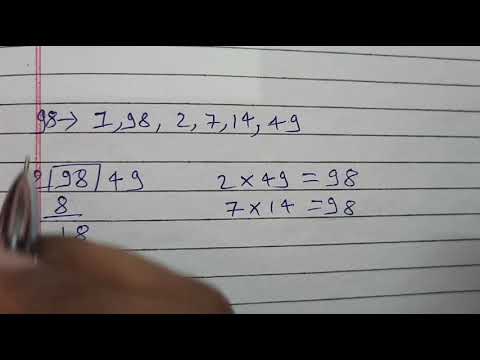 98→ 1, 98, 2, 7, 14, 49
2 98 49
2 × 49 = 98
8
7 × 14 = 98
18